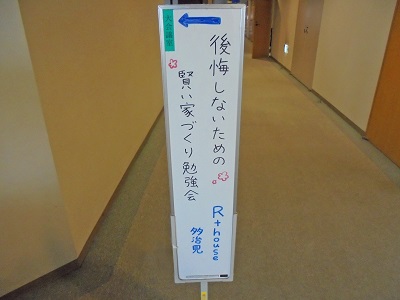 大会議室
後悔しないための
賢い家づくり勉強会
R+house
多治見